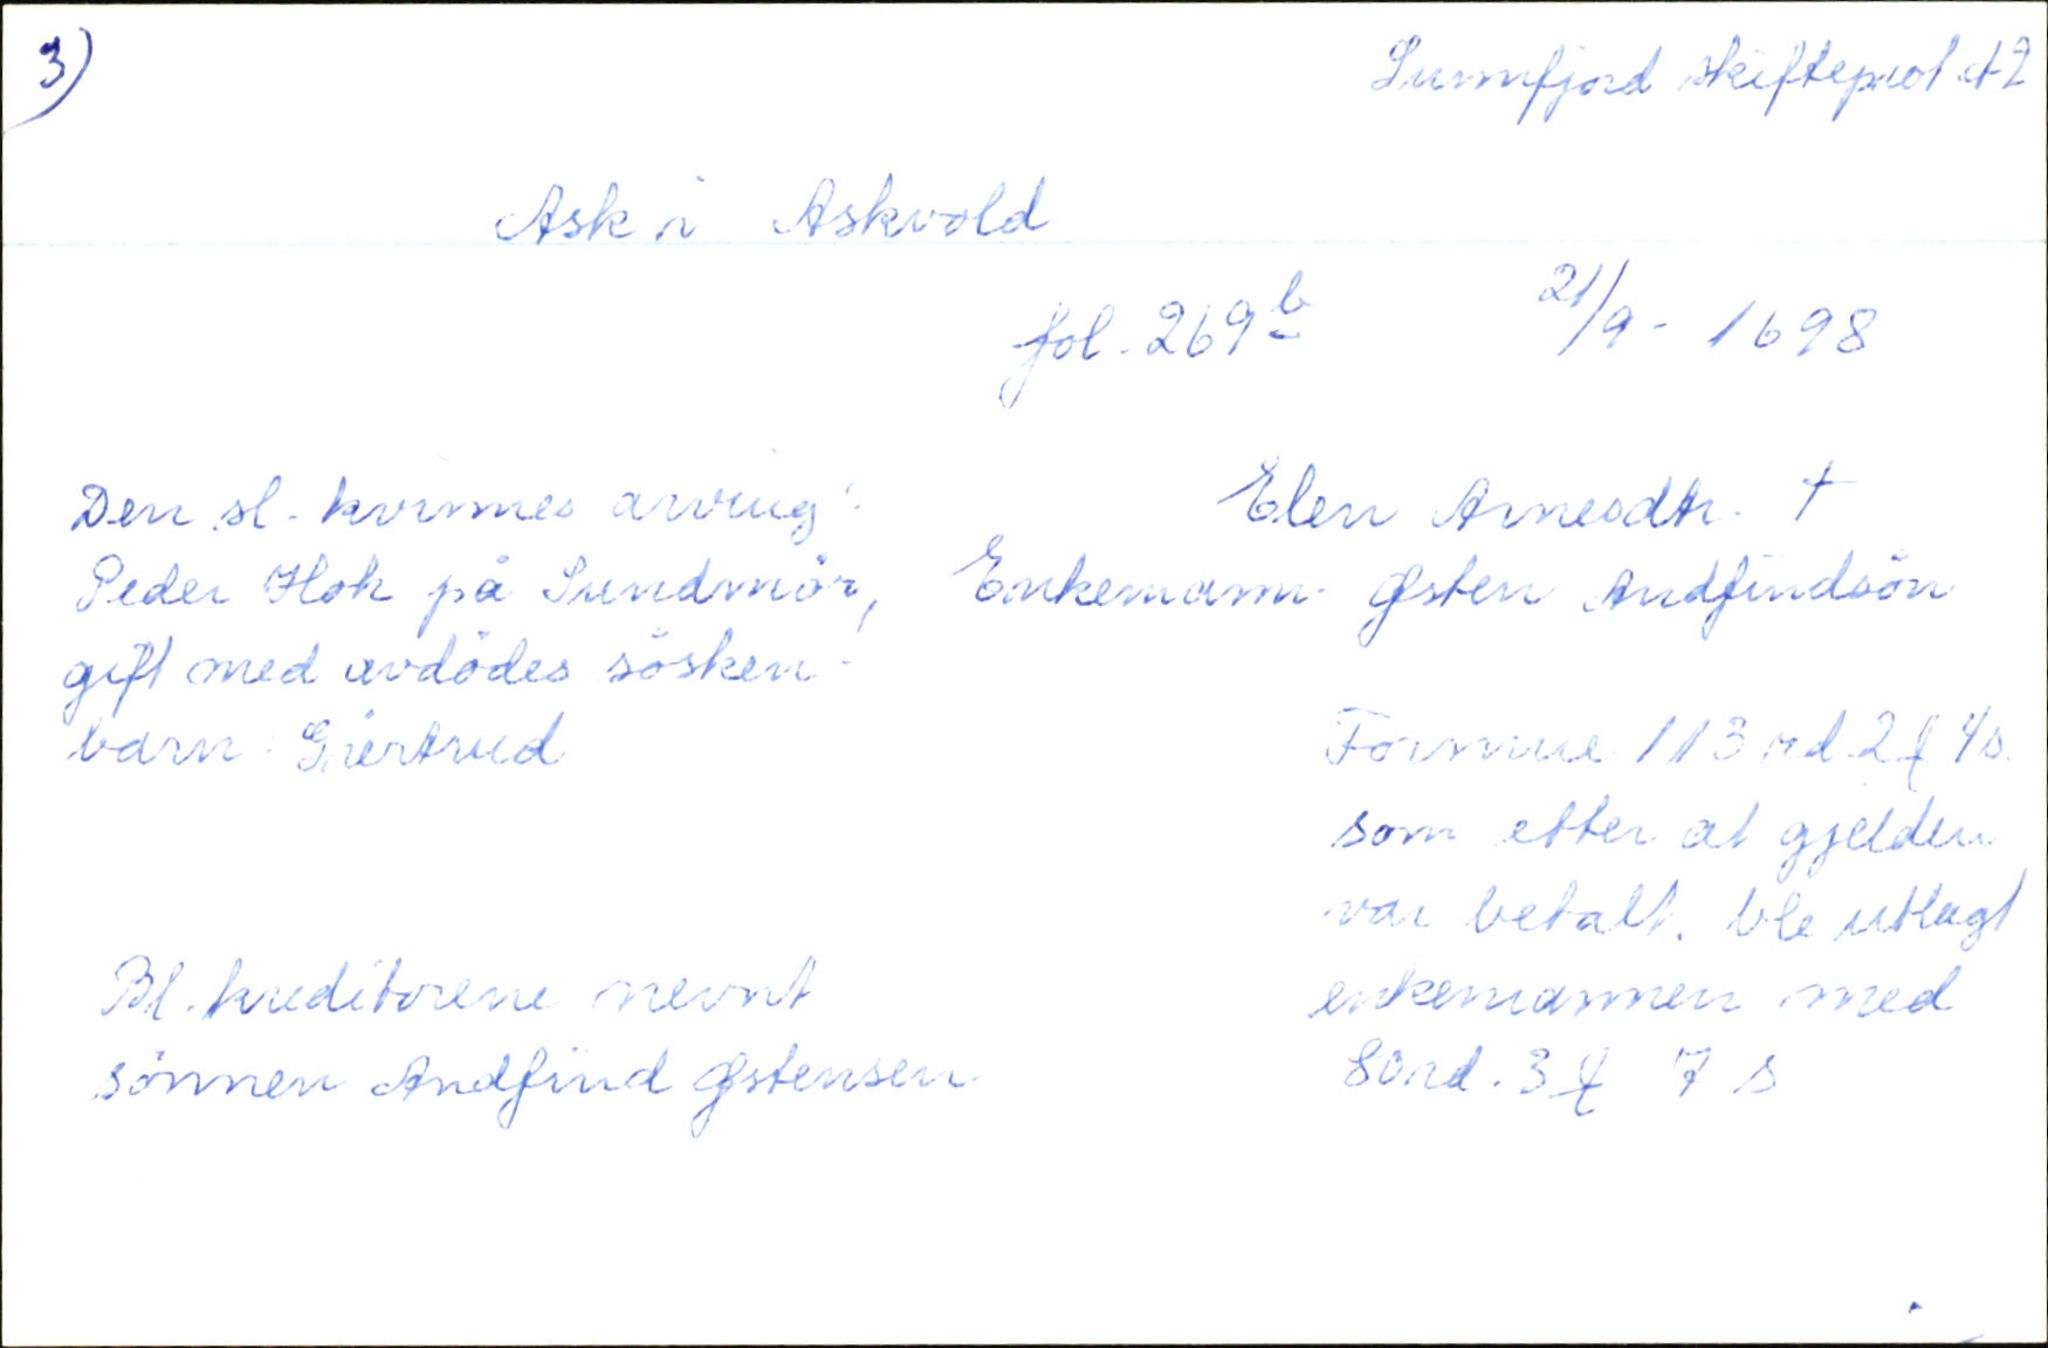 3)
Sunnfjord skifteprot A2
Ask i Askvold
fol. 269b 21/9 - 1698
Den sl. kvinnes arving:
Peder Hok på Sundmör,
gift med avdödes sösken-
barn: Giertrud
Bl. kreditorene nevnt
sönnen Andfind Østensen
Elen Arnesdtr. †
Enkemann Østen Andfindsön
Formue 113 rd. 2 ℳ 4 s.
som etter at gjelden
var betalt, ble utlagt
enkemannen med
80 rd. 3 ℳ 7 s